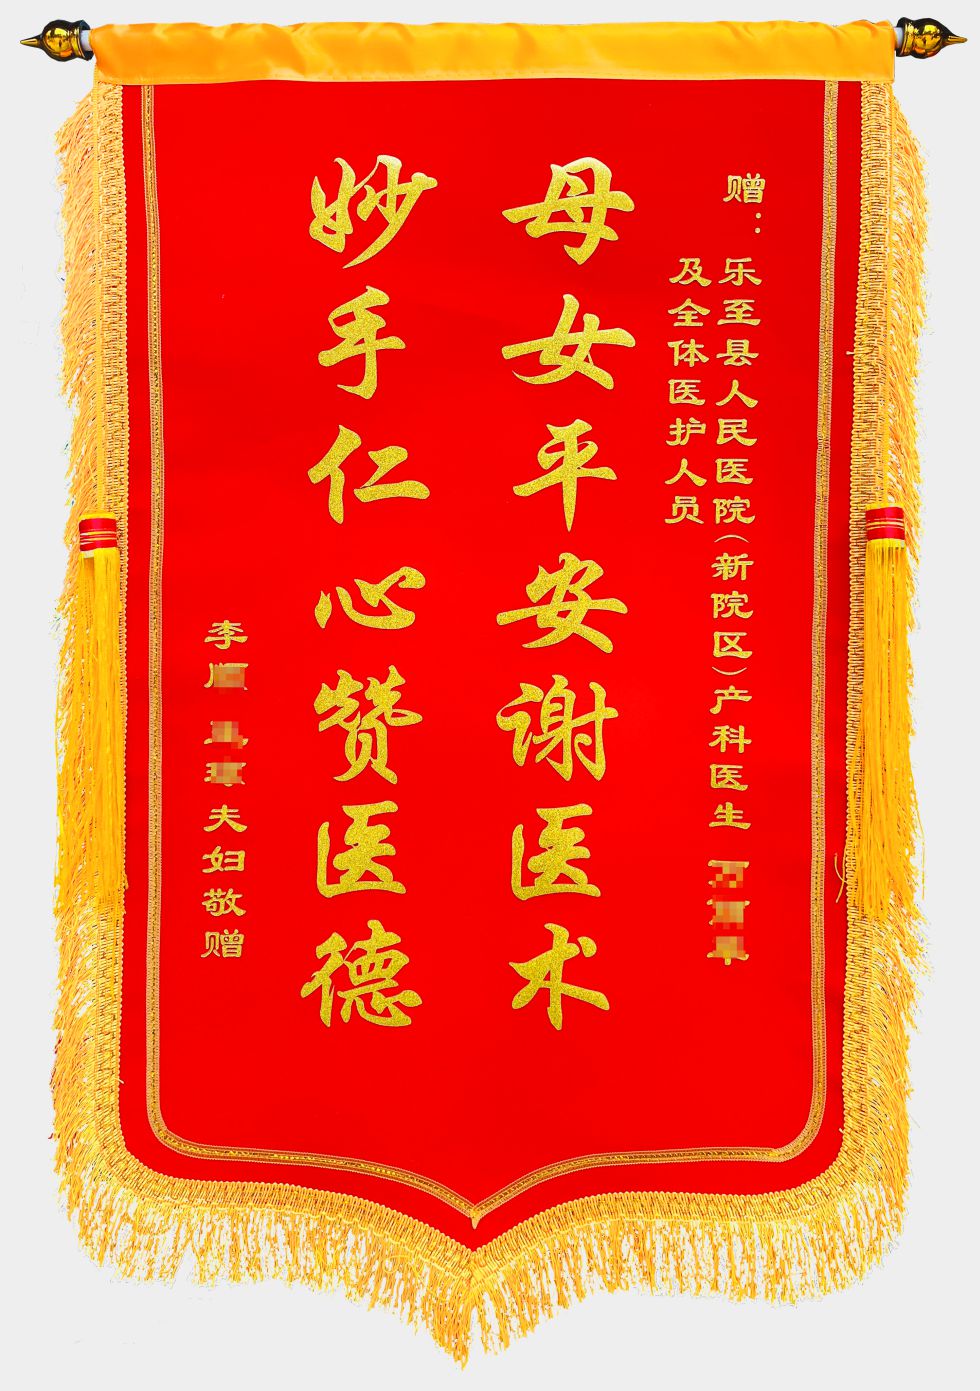 赠：
乐至县人民医院（新院区）产科医生
及全体医护人员
母女平安谢医术
妙手仁心赞医德
李顺 夫妇敬赠